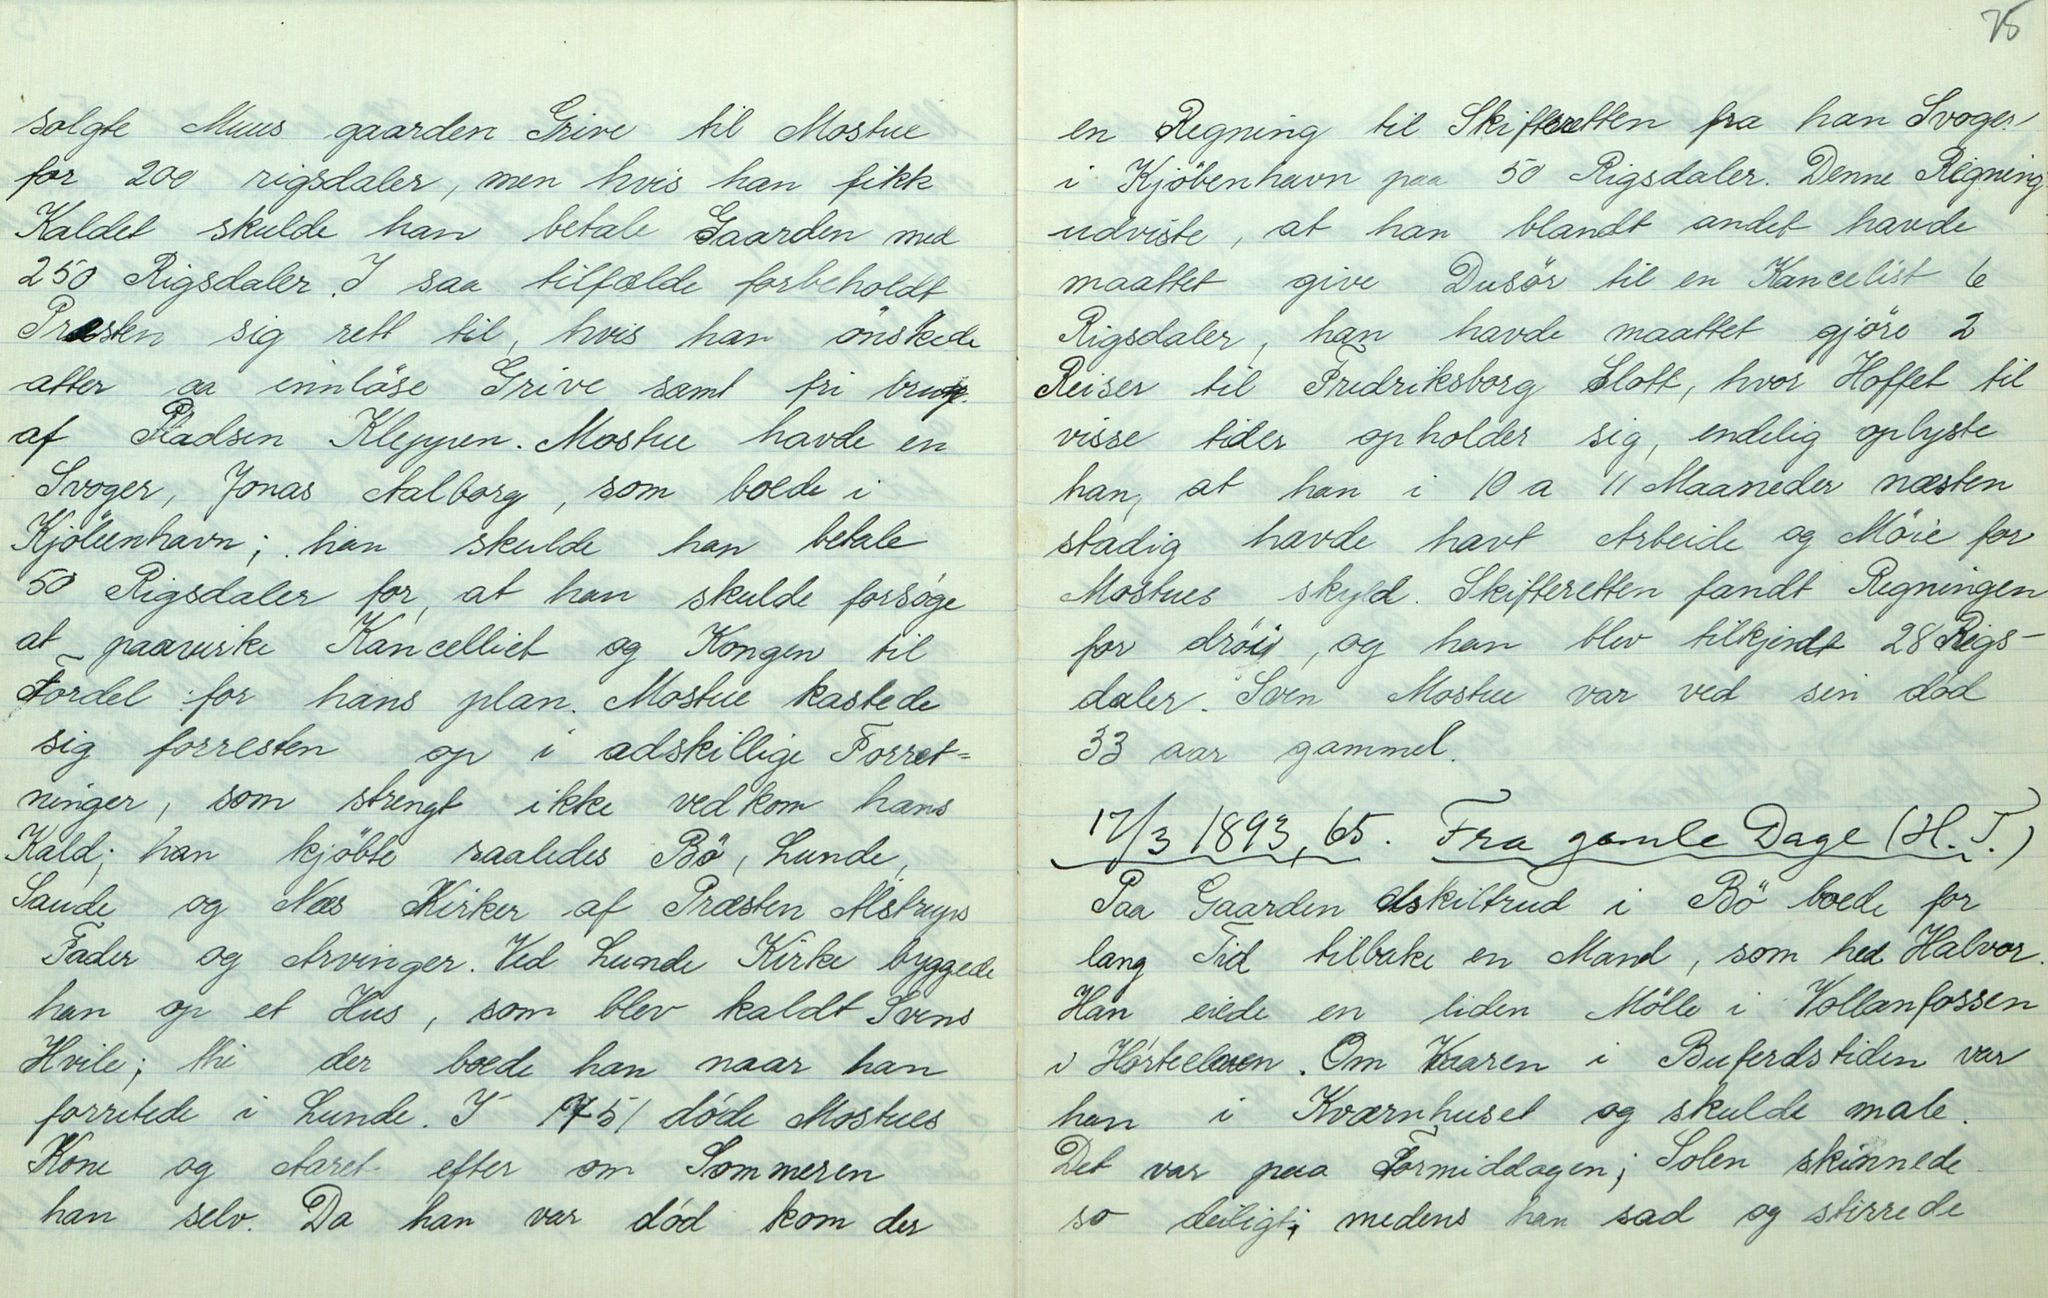 solgte Muus gaarden Grive til Mostue
for 200 rigsdaler, men hvis han fikk
Kaldet skulde han betale Gaarden med
250 Rigsdaler. I saa tilfælde forbeholdt
Præsten sig rett til, hvis han önskede
atter aa innlöse Grive samt fri bruk
af Pladsen Kleppen. Mostue havde en
Svoger, Jonas Aalborg, som boede i
Kjöbenhavn; han skulde han betale
50 Rigsdaler for, at han skulde forsöge
at paavirke Kancelliet og Kongen til
Fordel for hans plan. Mostue kastede
sig forresten op i adskillige Forret=
ninger, som strengt ikke vedkom hans
Kald; han kjöbte saaledes Bö, Lunde,
Saude og Næs Kirker af Præsten Alstrups
Fader og Arvinger. Ved Lunde Kirke byggede
han op et Hus, som blev kaldt Svens
Hvile; thi der boede han naar han
forretede i Lunde. I 1751 döde Mostues
Kone og Aaret efter om Sommeren
han selv. Da han var död kom der
75
en Regning til Skifteretten fra han Svoger
i Kjöbenhavn paa 50 Rigsdaler. Denne Regning
udviste, at han blandt andet havde
maattet give Dusör til en Kancelist 6
Rigsdaler, han havde maattet gjöre 2
Reiser til Fredriksborg Slott, hvor Hoffet til
visse tider opholder sig, endelig oplyste
han, at han i 10 a 11 Maaneder næsten
stadig havde havt Arbeide og Möie for
Mostues skyld. Skifteretten fandt Regningen
for dröi, og han blev tilkjendt 28 Rigs-
daler. Sven Mostue var ved sin död
33 aar gammel.
17/3 1893, 65. Fra gamle Dage (H. T.)
Paa Gaarden Askiltrud i Bö boede for
lang Tid tilbake en Mand, som hed Halvor.
Han eiede en liden Mölle i Vollanfossen
i Hörteelven. Om Vaaren i Buferdstiden var
han i Kværnhuset og skulde male.
Det var paa Formiddagen; Solen skinnede
so deiligt; medens han sad og stirrede